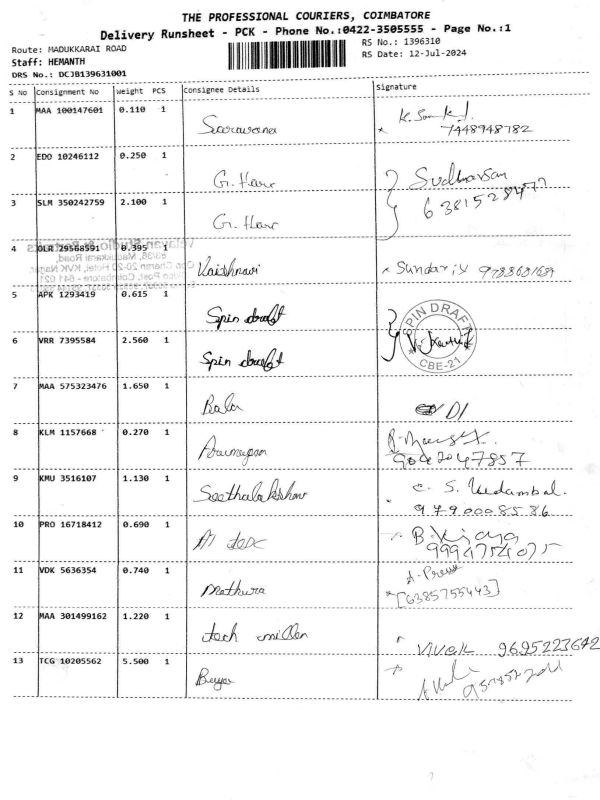 THE PROFESSIONAL COURIERS, COIMBATORE
Delivery Runsheet - PCK - Phone No.:0422-3505555 - Page No.:1
Route: MADUKKARAI ROAD
RS No.: 1396310
Staff: HEMANTH
RS Date: 12-Jul-2024
DRS No.: DCJB139631001
S No Consignment No Weight PCS Consignee Details Signature
1 MAA 100147601 0.110 1 Saravanan
7448948782
2 EDO 10246112 0.250 1 G. Hari Sudharsan
3 SLM 350242759 2.100 1 G. Hari 6381528477
4 OLR 29568591 0.395 1 Vaishnavi Sundari
5 APK 1293419 0.615 1 Spin draft SPIN DRAFT
6 VRR 7395584 2.560 1 Spin draft CBE-21
7 MAA 575323476 1.650 1 Bala DI
8 KLM 1157668 0.270 1 Arumugam
9042047857
9 KMU 3516107 1.130 1 Seethalakshmi C. S. Vedambal.
9790008586
10 PRO 16718412 0.690 1 B. Vijaya
9994754075
11 VDK 5636354 0.740 1 Mathura
[6385755443]
12 MAA 301499162 1.220 1 tech VIVEK 9695223642
13 TCG 10205562 5.500 1